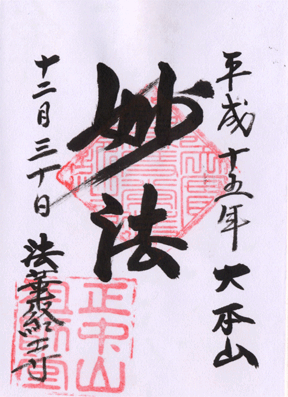 平成十五年 大本山
妙法
十二月三十日 法華経寺
正中山